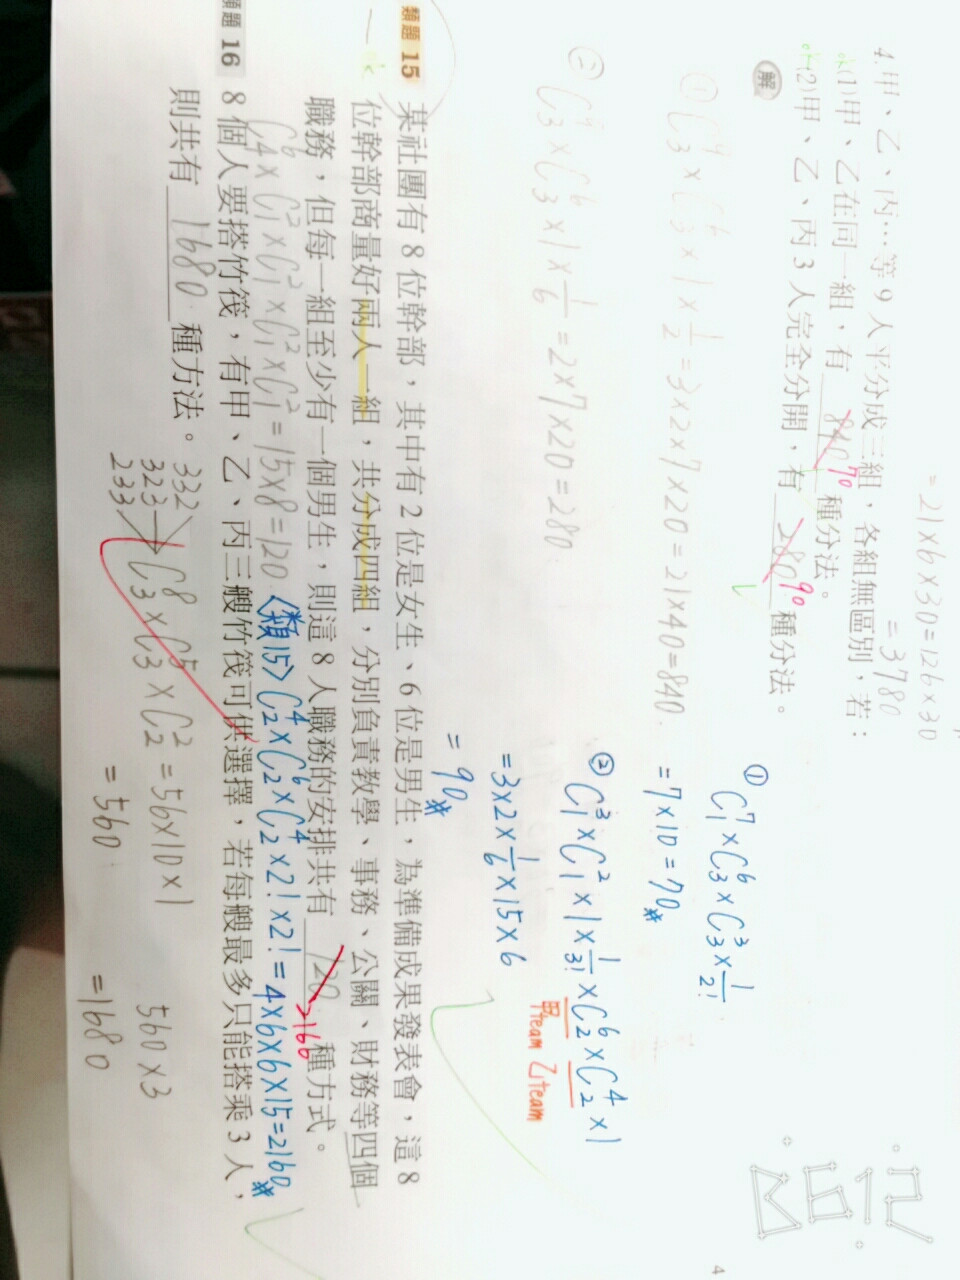 = 21×6×30=126×30
= 3780
4.甲、乙、丙…等 9 人平分成三組,各組無區別,若:
ok(1)甲、乙在同一組,有 840 70 種分法。
ok(2)甲、乙、丙 3 人完全分開,有 280 90 種分法。
解
① C⁹₃ × C⁶₃ × 1 × 1/2 = 3×2×7×20 = 21×40=840.
② C⁹₃ × C⁶₃ × 1 × 1/6 = 2×7×20=280.
① C⁷₁ × C⁶₃ × C³₃ × 1/2!
= 7×10 = 70
② C³₁ × C²₁ × 1 × 1/3! × C⁶₂ × C⁴₂ × 1
甲team 乙team
= 3×2×1/6×15×6
= 90
類題 15
ok
某社團有 8 位幹部,其中有 2 位是女生、6 位是男生,為準備成果發表會,這 8
位幹部商量好兩人一組,共分成四組,分別負責教學、事務、公關、財務等四個
職務,但每一組至少有一個男生,則這 8 人職務的安排共有 120 2160 種方式。
C⁶₄ × C²₁ × C²₁ × C²₁ × C²₁ = 15×8=120
<類15> C⁴₂ × C⁶₂ × C⁴₂ × 2! × 2! = 4×6×6×15=2160
類題 16
8 個人要搭竹筏,有甲、乙、丙三艘竹筏可供選擇,若每艘最多只能搭乘 3 人,
則共有 1680 種方法。
332
323
233
C⁸₃ × C⁵₃ × C²₂ = 56×10×1
= 560
560×3
=1680
4